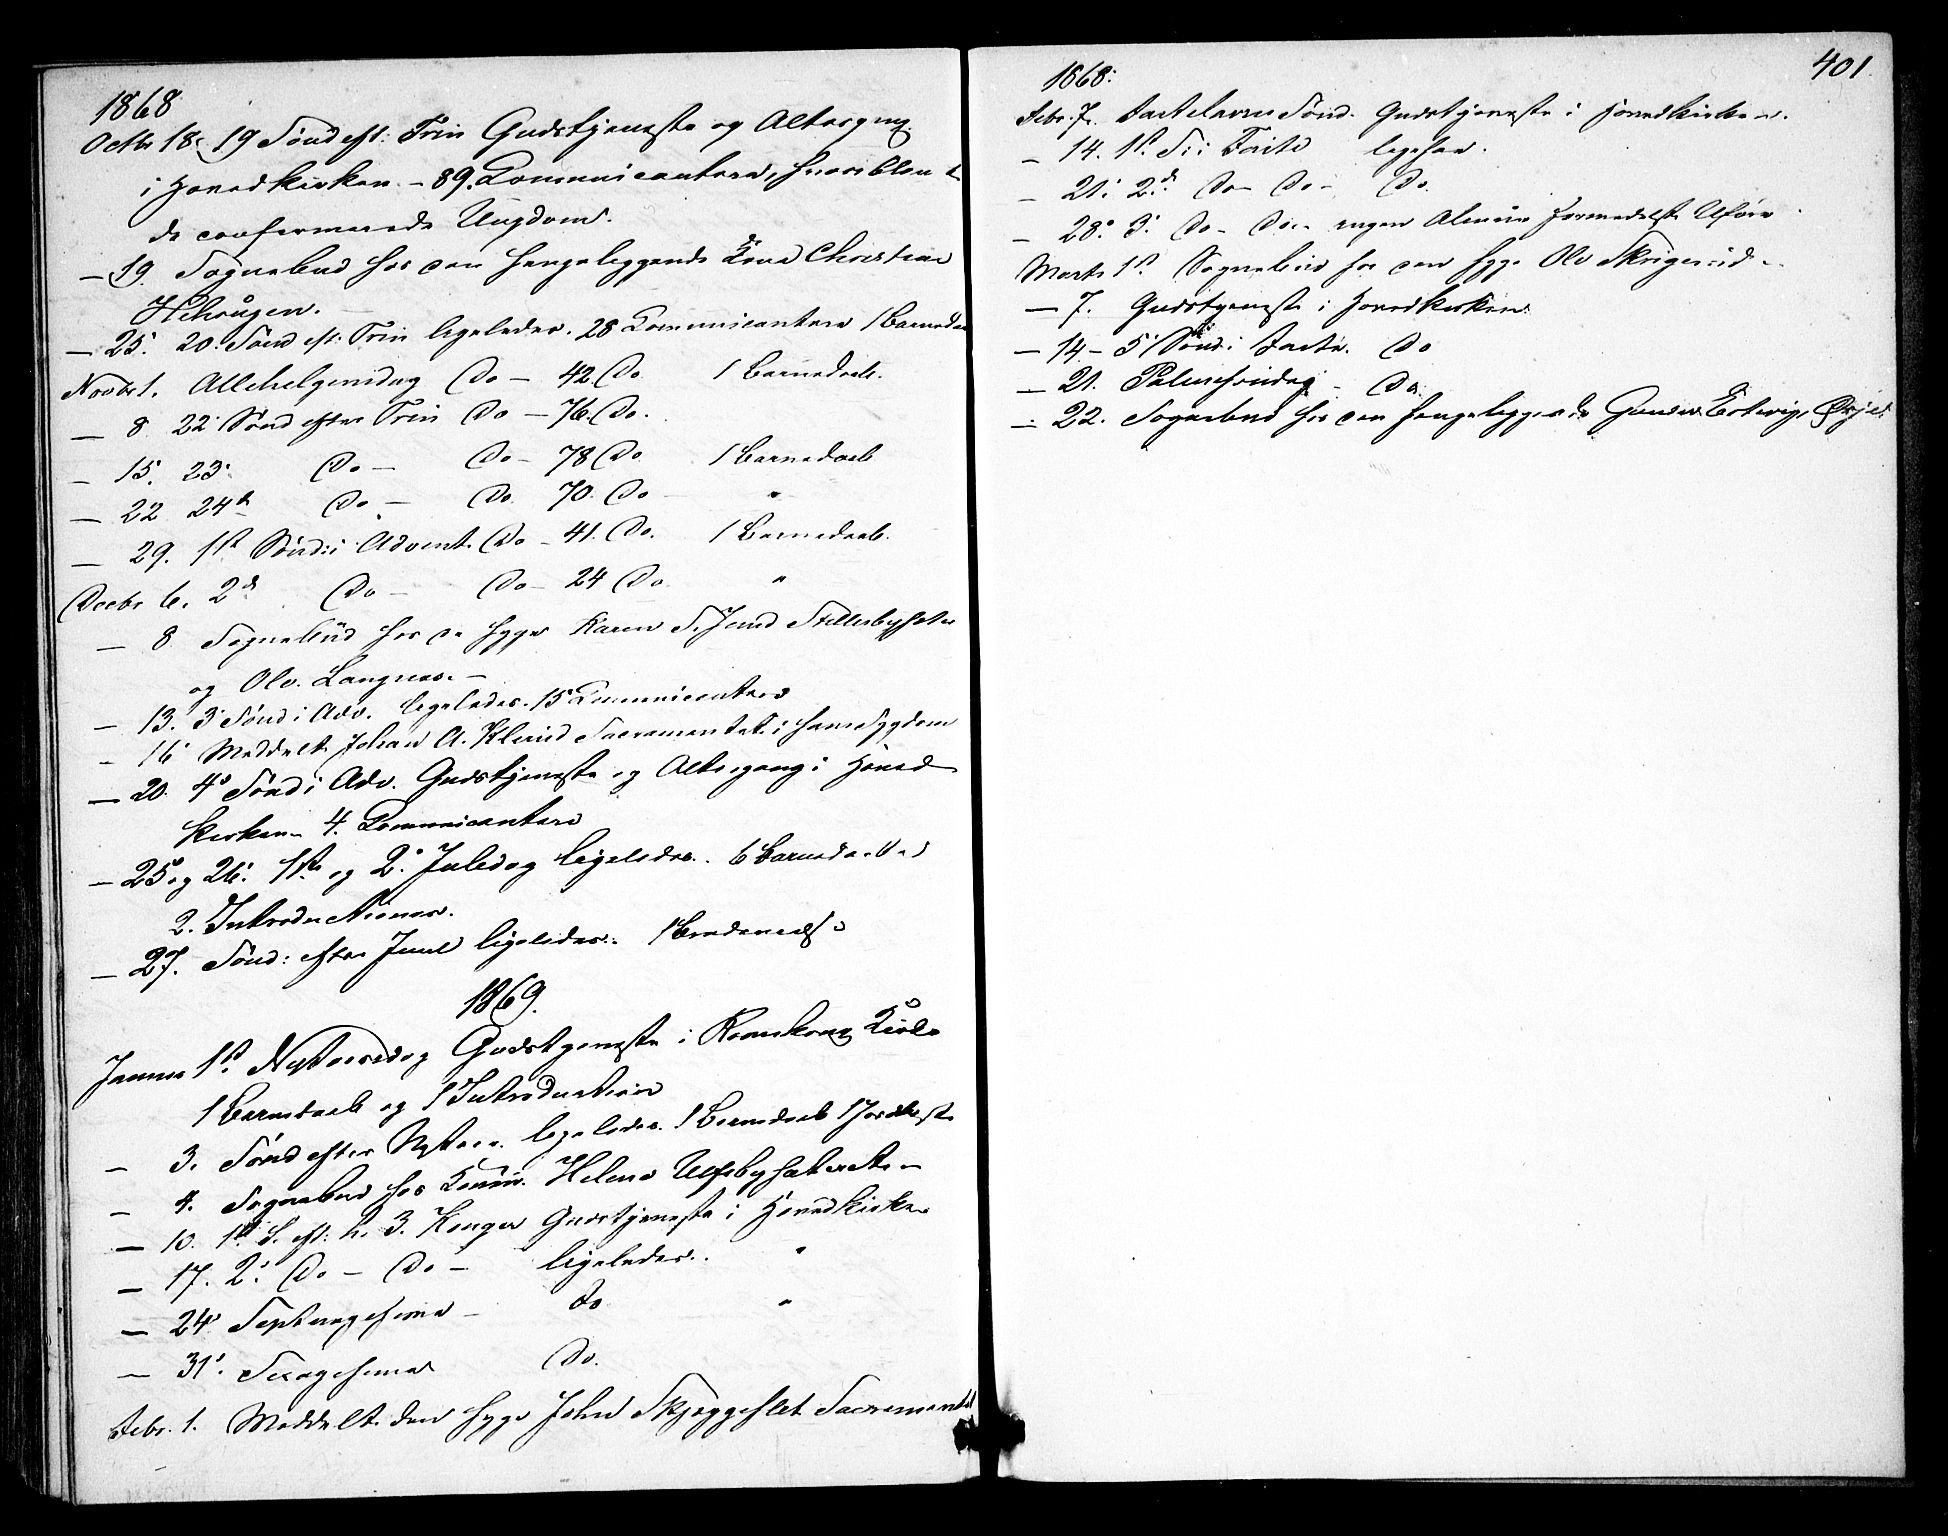 1868
Octbr 18. 19 Sønd eft: Trin Gudstjeneste og Altergang
i Hovedkirken. – 89. Communicantere, hvoriblandt
de confirmerede Ungdom.
– 19. Sognebud hos den sengeliggende Kone Christine
– 25. 20. Sønd eft: Trin ligeledes. 28 Communicantere 1 Barnedaab
Novbr 1. Allehelgensdag Do – 42. Do. 1 Barnedaab.
– 8. 22 Sønd efter Trin Do – 76. Do.
– 15. 23. Do – Do – 78 Do 1 Barnedaab
– 22 24de Do – Do. 70. Do – "
– 29. 1st Sønd: i Advent. Do – 41. Do. 1 Barnedaab.
Decbr 6. 2d Do – Do – 24 Do "
– 8. Sognebud hos de syge Karen
og Ole Langnæs. –
– 13. 3 Sønd i Adv. ligeledes. 15 Communicantere
– 16 Meddelt Johan A. Sacramentet i hans Sygdom
– 20. 4. Sønd i Adv. Gudstjeneste og Altergang i Hoved
kirken – 4. Communicantere
– 25 og 26. 1ste og 2. Juledag ligeledes. 6 Barnedaab
2. Introductioner.
– 27. Sønd: efter Juul ligeledes. 1
1869.
Januar 1st Nytaarsdag Gudstjeneste i Romskoug Kirke
1 Barnedaab og 1 Introduction
– 3. Sønd efter Nytaar. ligeledes. 1 Barnedaab 1 Jordfæst
– 4. Sognebud hos Helene
– 10. 1st S. eft: h. 3. Konger Gudstjeneste i Hovedkirken
– 17. 2. Do – Do – ligeledes. "
– 24 Septuagesima – do "
– 31. Sexagesima Do.
Febr. 1. Meddelt den syge John Skjeggeslet Sacramentet
401.
1868:
Febr. 7. Fastelavns Sønd. Gudstjeneste i Hovedkirken.
– 14. 1st S. i Faste ligesaa.
– 21. 2d Do – Do – Do.
– 28. 3. Do – Do – ingen Almue formedelst Uføre
Marts 1st Sognebud hos den syge Ole
– 7. Gudstjeneste i Hovedkirken.
– 14 – 5 Sønd i Faste. Do
– 21. Palmesøndag – Do.
– 22. Sognebud hos den sengeliggende Gunder